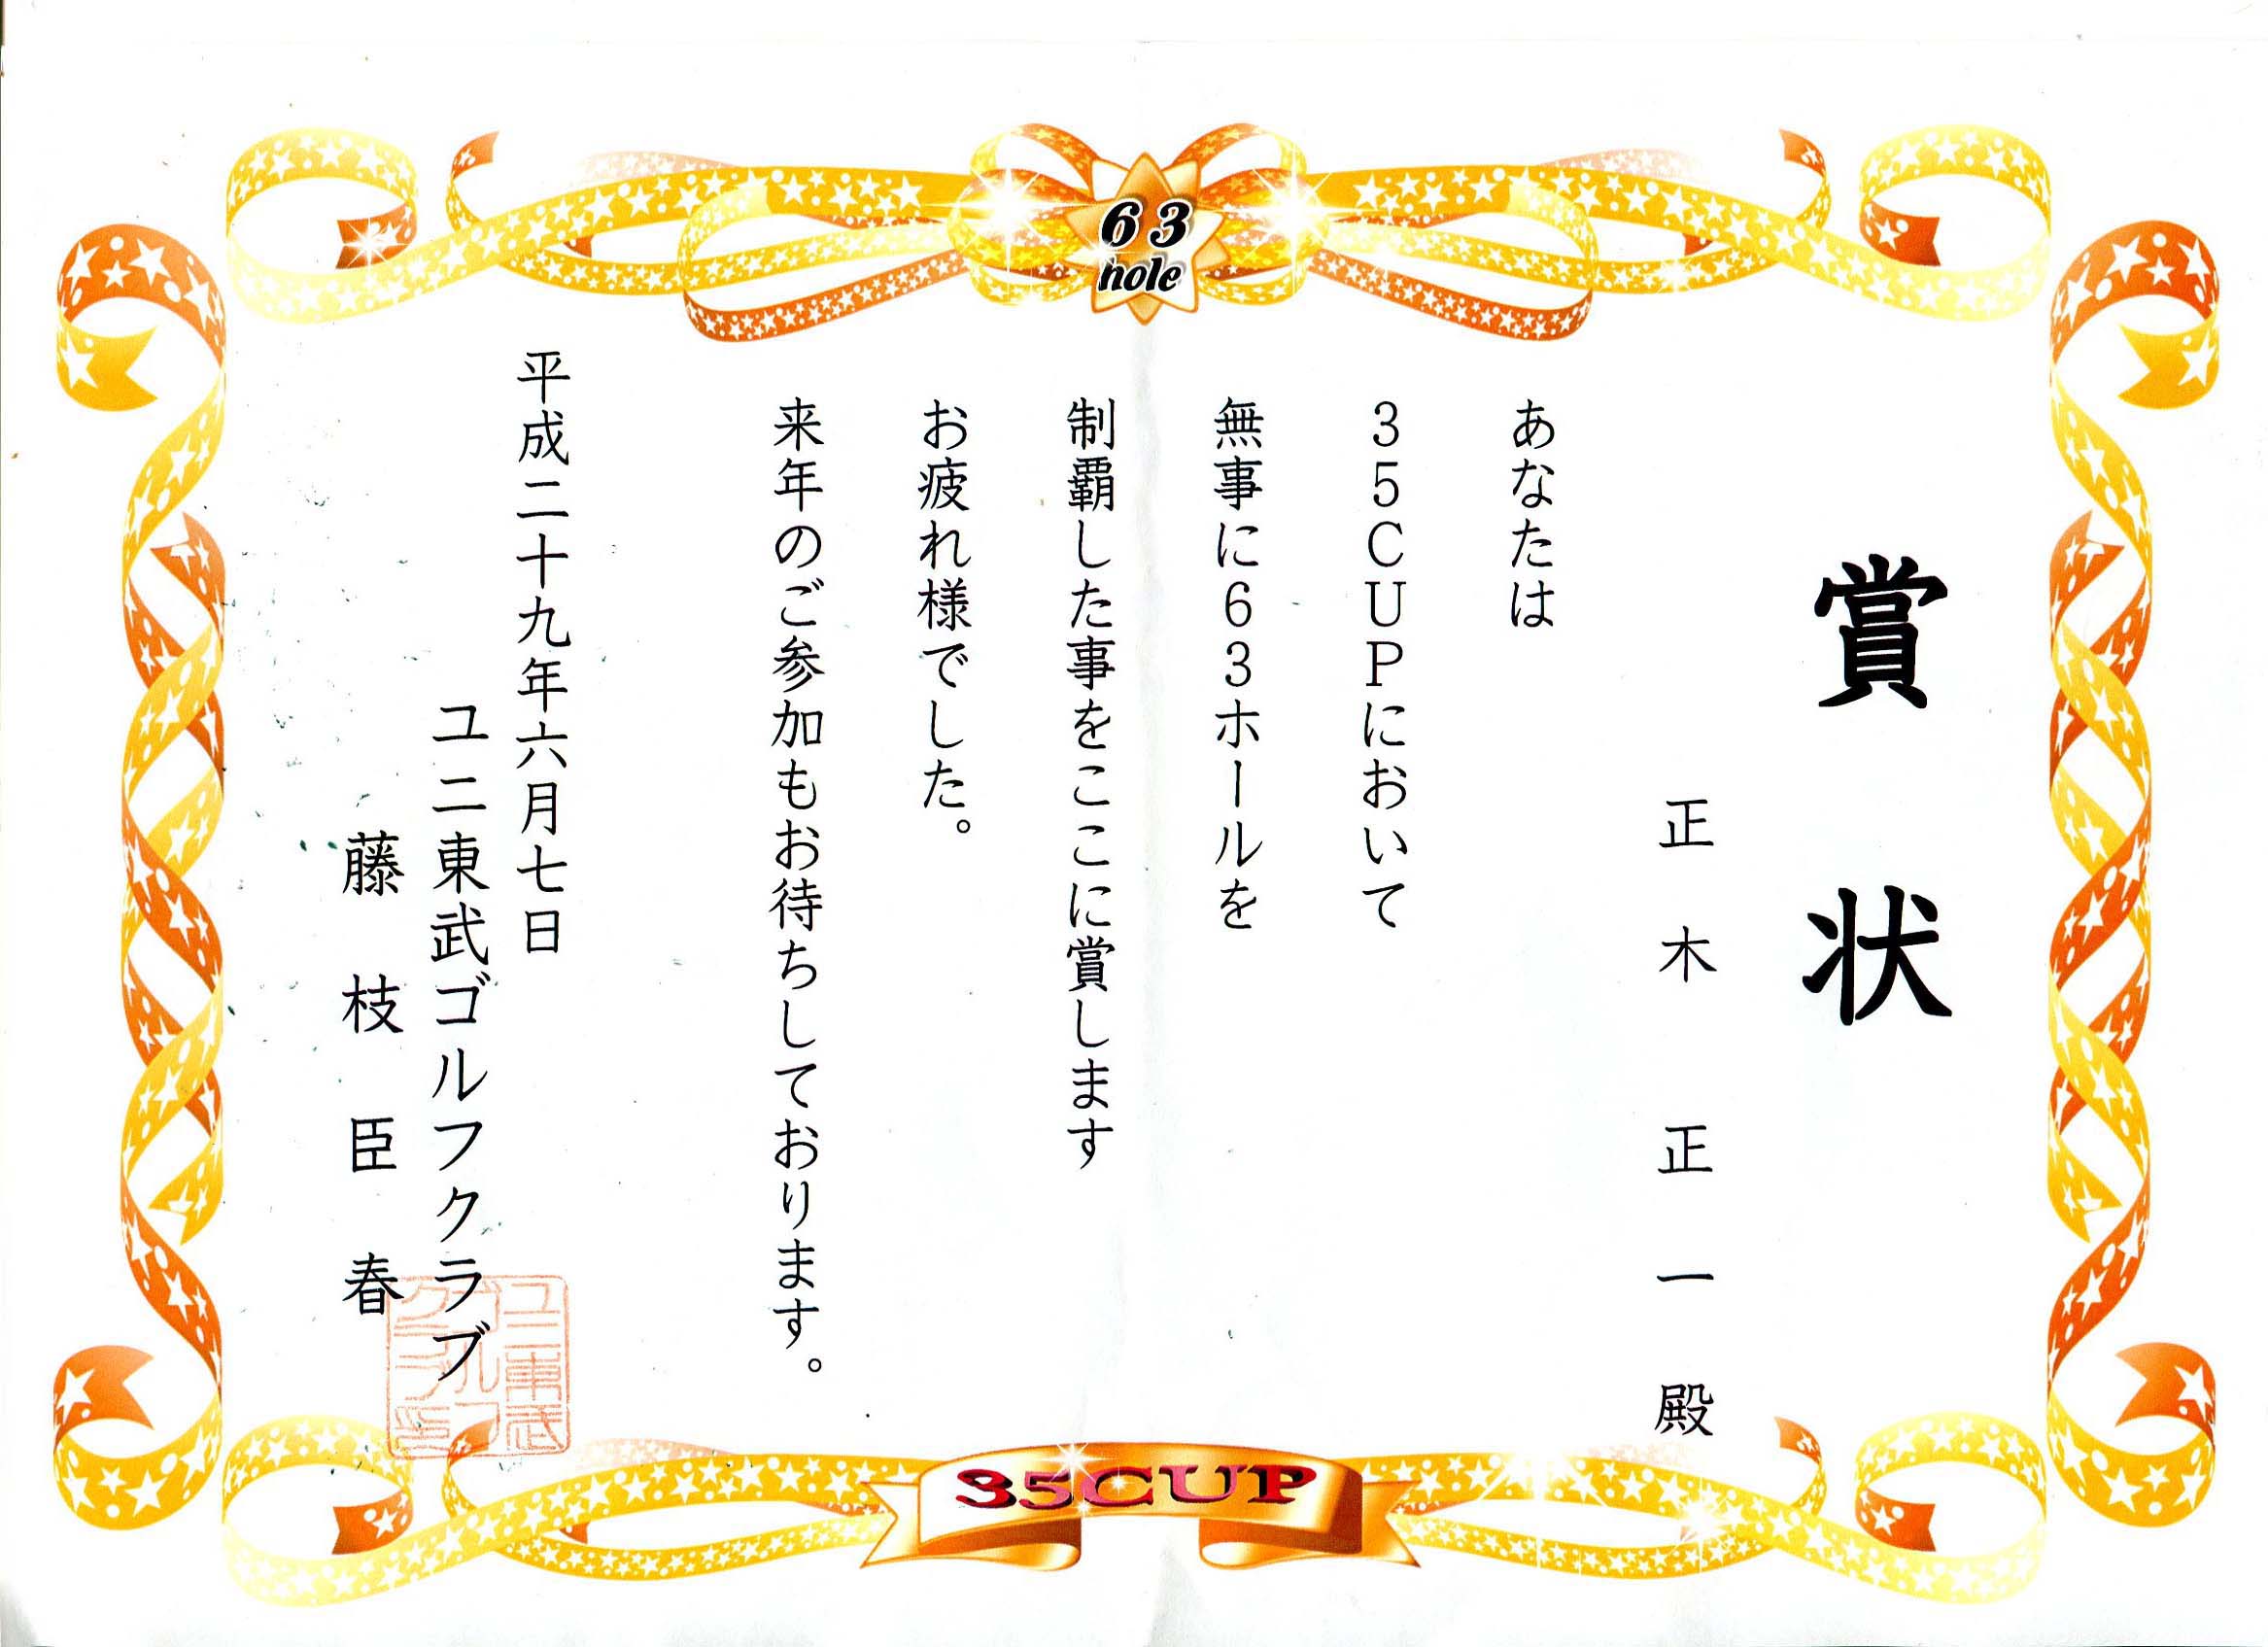 63
hole
賞状
正木 正一 殿
あなたは
35CUPにおいて
無事に63ホールを
制覇した事をここに賞します
お疲れ様でした。
来年のご参加もお待ちしております。
平成二十九年六月七日
ユニ東武ゴルフクラブ
藤枝臣春
ユニ東武
ゴルフ
クラブ印
35CUP